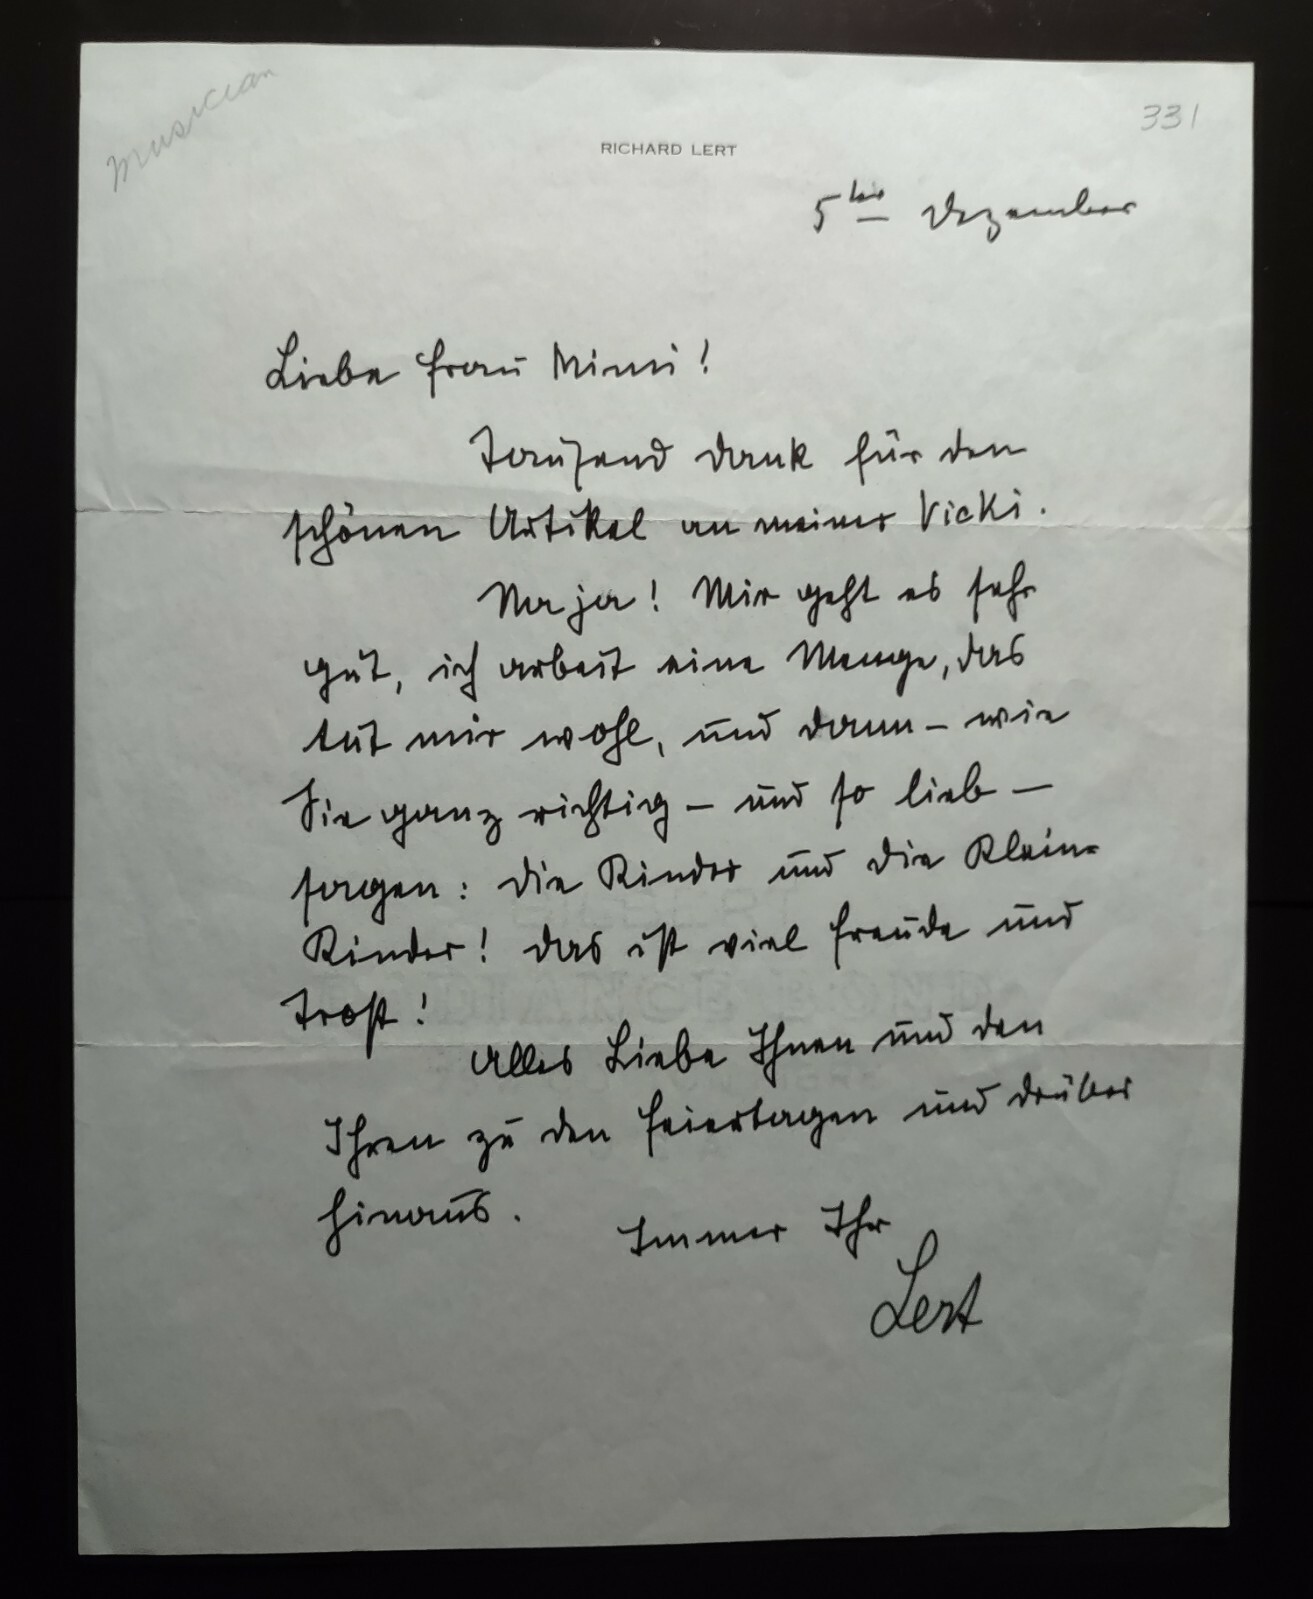 musician
331
RICHARD LERT
5ter Dezember
Liebe Frau Mimi!
Tausend Dank für den
schönen Artikel an meiner Vicki.
Na ja! Mir geht es sehr
gut, ich arbeit eine Menge, das
tut mir wohl, und dann – wie
Sie ganz richtig – und so lieb –
sagen: die Kinder und die Klein-
Kinder! Das ist viel Freude und
Trost!
Alles Liebe Ihnen und den
Ihren zu den Feiertagen und drüber
hinaus.
Immer Ihr
Lert